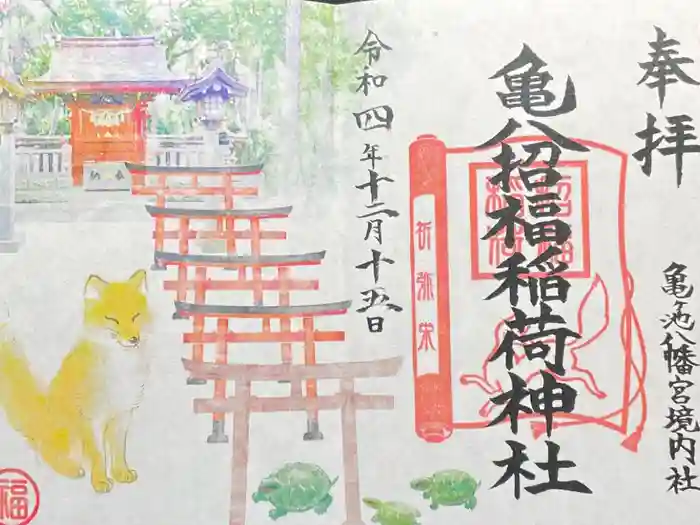 奉拝
亀ヶ池八幡宮境内社
亀八招福稲荷神社
祈弥栄
令和四年十二月十五日
福